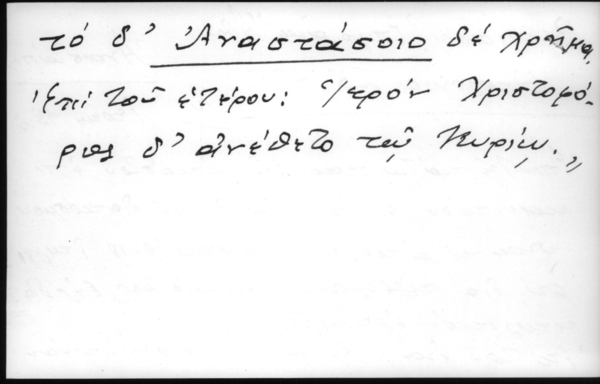 τό δ' Ἀναστάσοιο δέ χρῆμα.
Ἐπί τοῦ ἑτέρου: ἱερόν Χριστοφό-
ρος δ' ἀνέθετο τῷ Κυρίῳ."